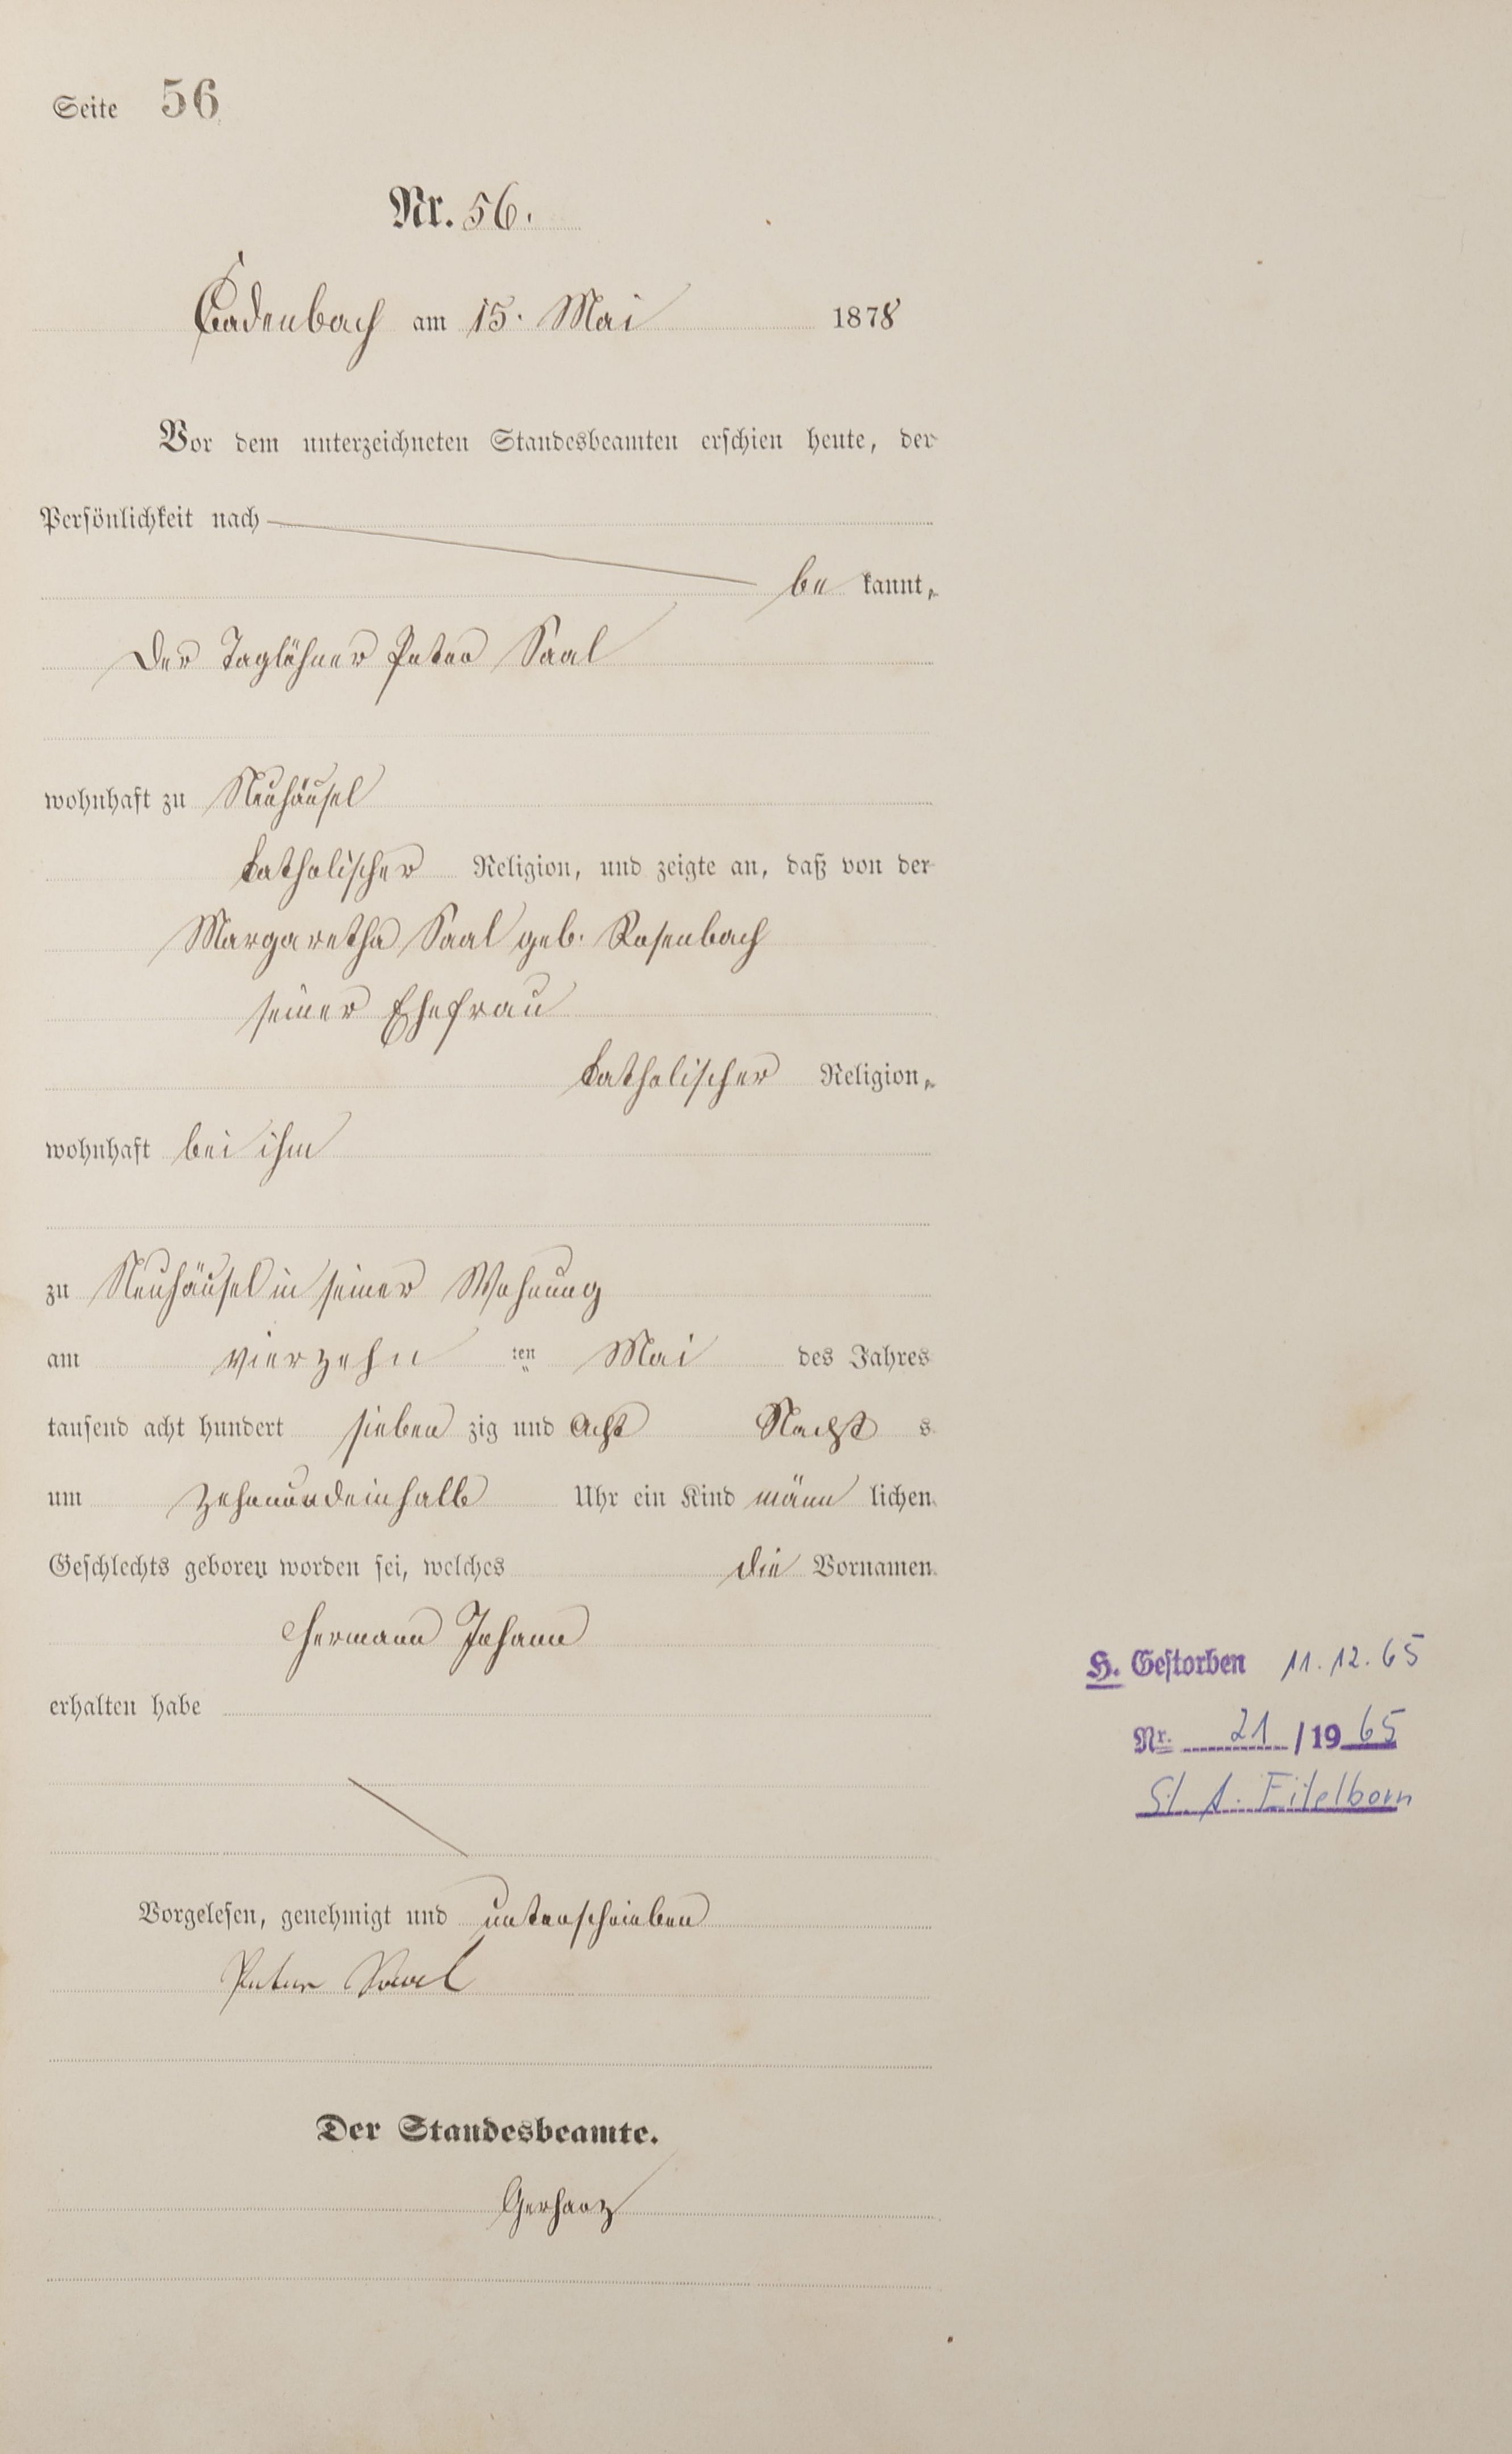 Seite 56
Nr. 56.
Cadenbach am 15. Mai 1878
Vor dem unterzeichneten Standesbeamten erschien heute, der
Persönlichkeit nach
be kannt,
der Taglöhner Peter Saal
wohnhaft zu Neuhäusel
katholischer Religion, und zeigte an, daß von der
Margaretha Saal geb. Rosenbach
seiner Ehefrau
katholischer Religion,
wohnhaft bei ihm
zu Neuhäusel in seiner Wohnung
am vierzehn ten Mai des Jahres
tausend acht hundert sieben zig und acht Nacht s
um zehnundeinhalb Uhr ein Kind männ lichen
Geschlechts geboren worden sei, welches die Vornamen
Hermann Johann
erhalten habe
H. Gestorben 11.12.65
Nr. 21 / 19 65
St. A. Eitelborn
Vorgelesen, genehmigt und unterschrieben
Peter Saal
Der Standesbeamte.
Gerharz